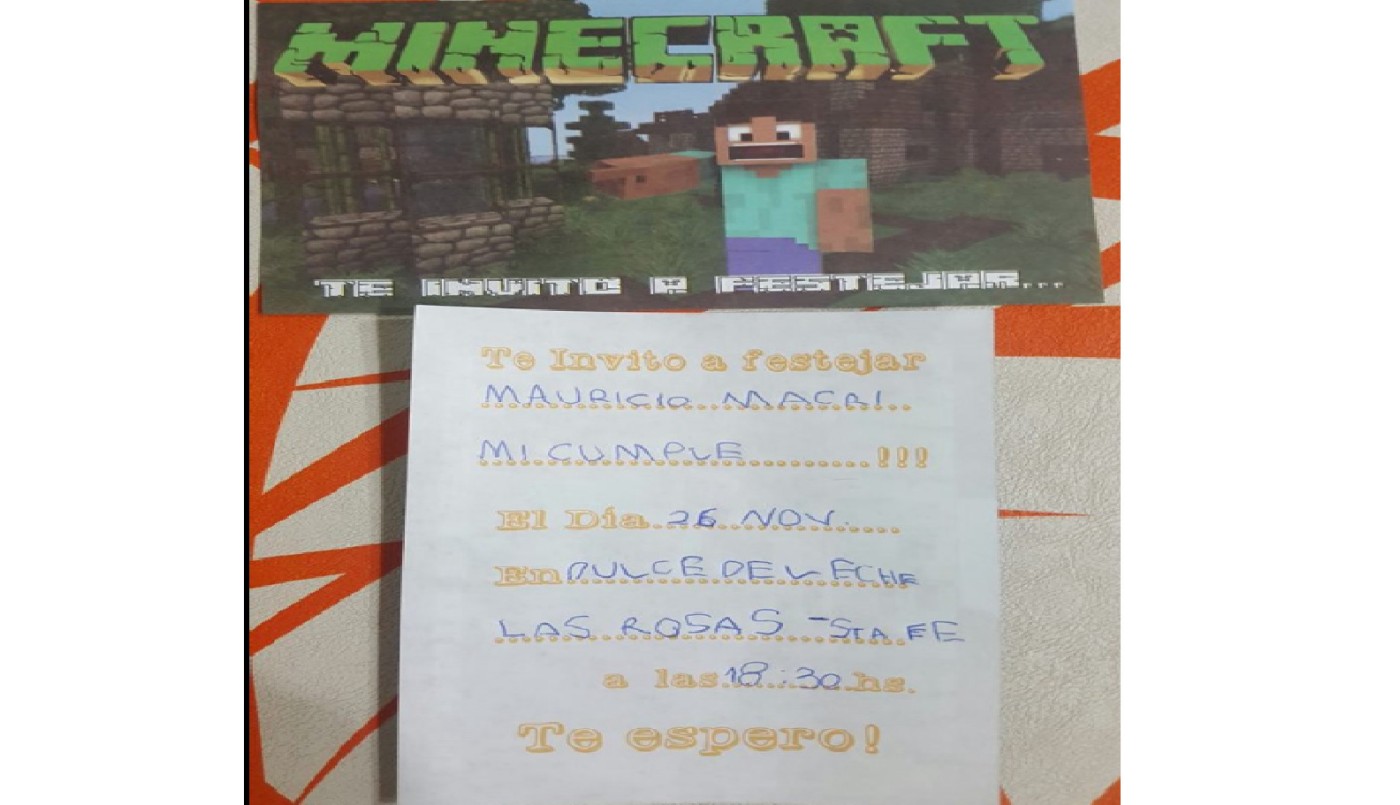 MINECRAFT
TE INVITO A FESTEJAR...
Te Invito a festejar
MAURICIO MACRI
MI CUMPLE !!!
El Día 26 NOV.
En DULCE DE LECHE
LAS ROSAS - STA FE
a las 18:30 hs.
Te espero!